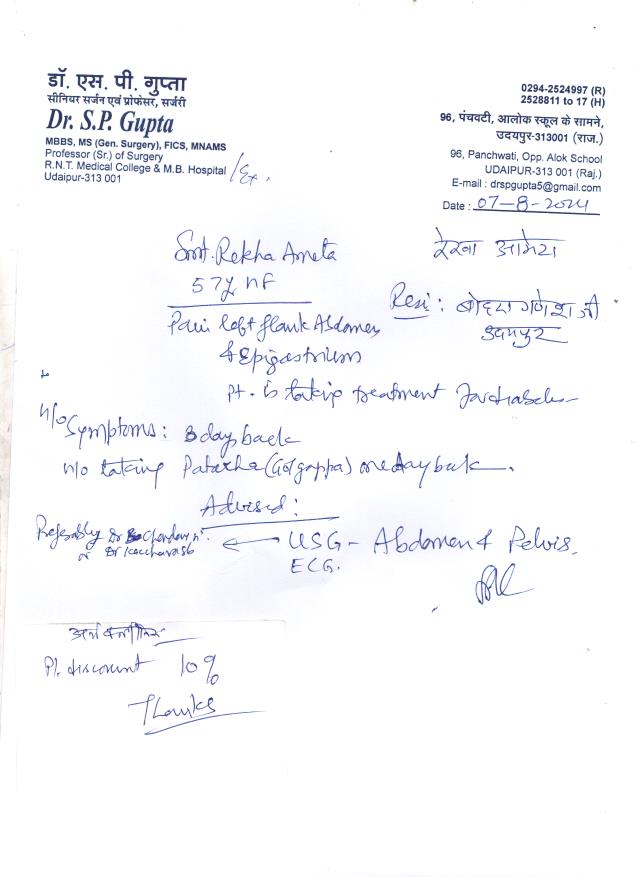 डॉ. एस. पी. गुप्ता
सीनियर सर्जन एवं प्रोफेसर, सर्जरी
Dr. S.P. Gupta
MBBS, MS (Gen. Surgery), FICS, MNAMS
Professor (Sr.) of Surgery
R.N.T. Medical College & M.B. Hospital / Ex.
Udaipur-313 001
0294-2524997 (R)
2528811 to 17 (H)
96, पंचवटी, आलोक स्कूल के सामने,
उदयपुर-313001 (राज.)
96, Panchwati, Opp. Alok School
UDAIPUR-313 001 (Raj.)
E-mail : drspgupta5@gmail.com
Date : 07-8-2024
Smt. Rekha Ameta
रेखा आमेटा
57y
Resi : बोहरा गणेश जी
उदयपुर
Pain left flank Abdomen
& Epigastrium
Pt. is taking treatment
H/o Symptoms: 3 days back
H/o taking (Golgappa) one day back.
Advised :
Preferably Dr
or Dr
USG - Abdomen & Pelvis.
ECG.
Pl. discount 10%
Thanks